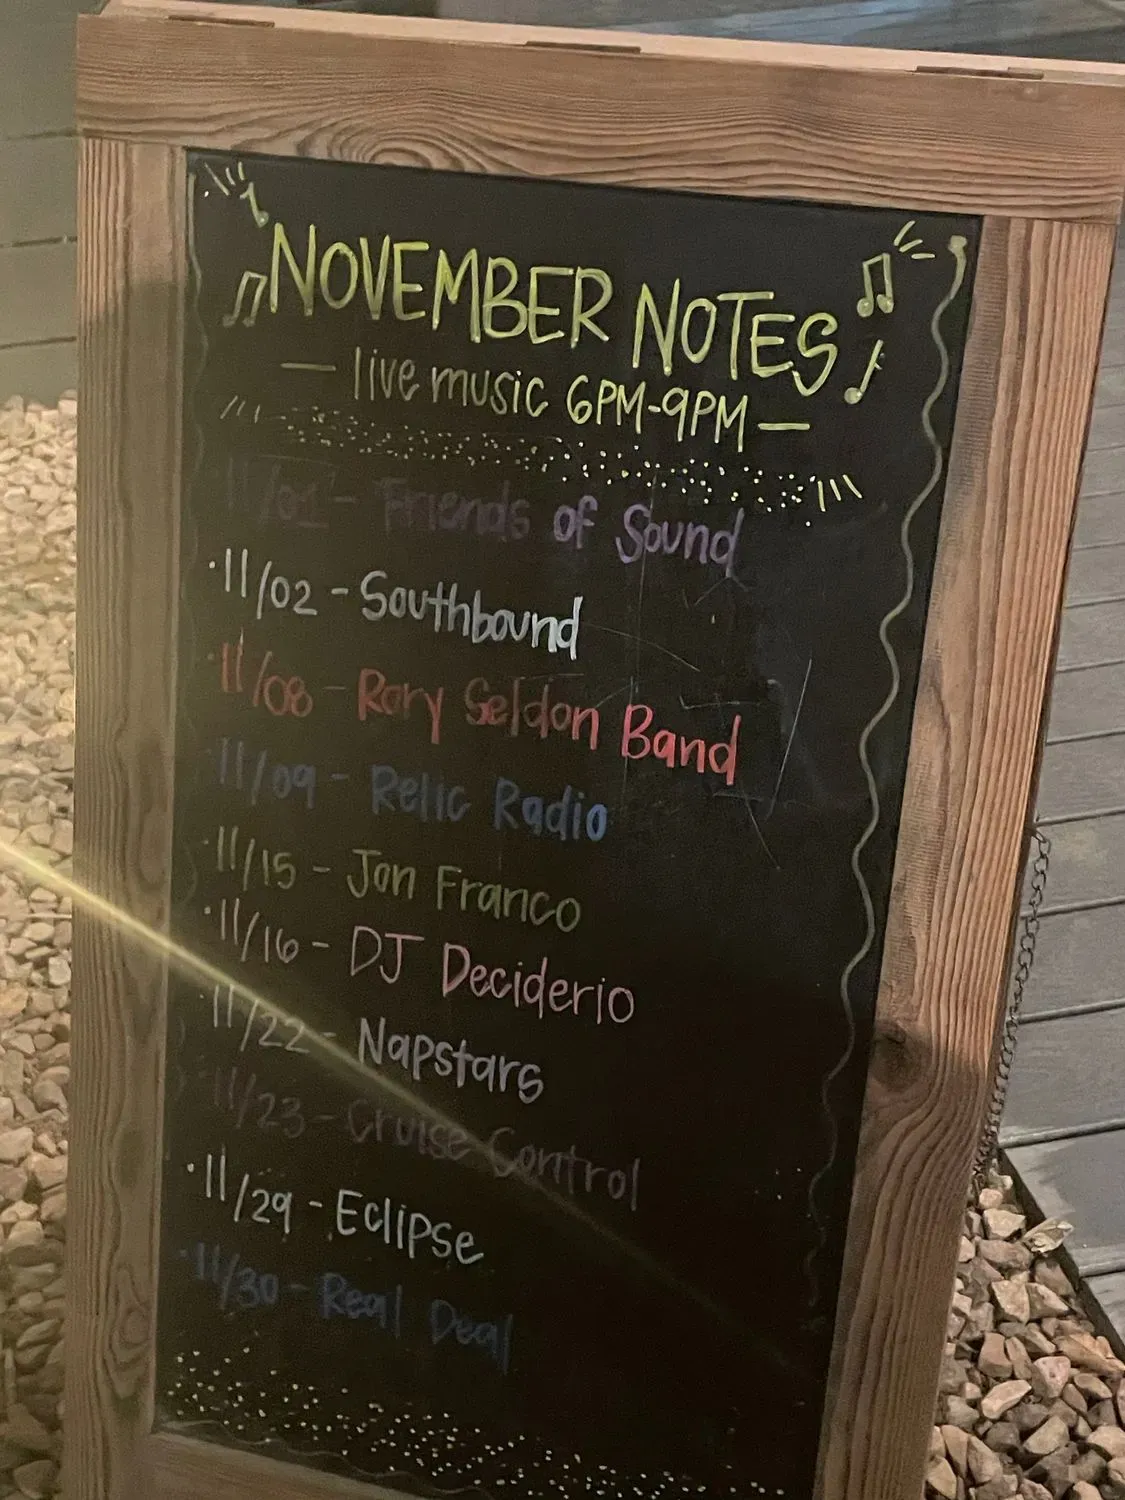 NOVEMBER NOTES
— live music 6PM-9PM —
11/01 - Friends of Sound
·11/02 - Southbound
·11/08 - Rory Seldon Band
·11/09 - Relic Radio
·11/15 - Jon Franco
·11/16 - DJ Deciderio
·11/22 - Napstars
·11/23 - Cruise Control
·11/29 - Eclipse
·11/30 - Real Deal